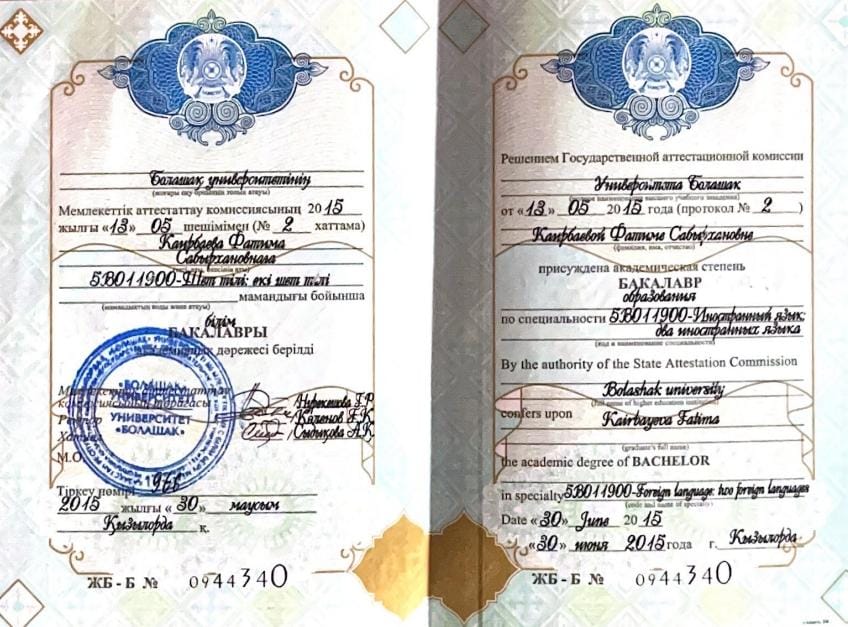 Болашақ университетінің
(жоғары оқу орнының толық атауы)
Мемлекеттік аттестаттау комиссиясының 2015
жылғы «13» 05 шешімімен (№ 2 хаттама)
Каирбаева Фатима
Сабырхановнаға
5В011900-Шет тілі: екі шет тілі
мамандығы бойынша
(мамандықтың коды және атауы)
білім
БАКАЛАВРЫ
академиялық дәрежесі берілді
«БОЛАШАҚ»
УНИВЕРСИТЕТІ
УНИВЕРСИТЕТ
«БОЛАШАК»
Нурекешова Г.Р.
Ректор Каленов Г.К.
Хатшы Сыдыкова А.К.
М.О.
Тіркеу нөмірі
2015 жылғы «30» маусым
Қызылорда қ.
ЖБ - Б № 0944340
Решением Государственной аттестационной комиссии
Университета Болашак
от «13» 05 2015 года (протокол № 2 )
Каирбаевой Фатиме Сабырхановне
(фамилия, имя, отчество)
присуждена академическая степень
БАКАЛАВР
образования
по специальности 5В011900-Иностранный язык:
два иностранных языка
(код и наименование специальности)
By the authority of the State Attestation Commission
Bolashak university
(full name of higher education institution)
confers upon Kairbayeva Fatima
(graduate's full name)
the academic degree of BACHELOR
in specialty 5B011900-Foreign language: two foreign languages
(code and name of specialty)
Date «30» June 2015
«30» июня 2015 года г. Кызылорда
ЖБ - Б № 0944340